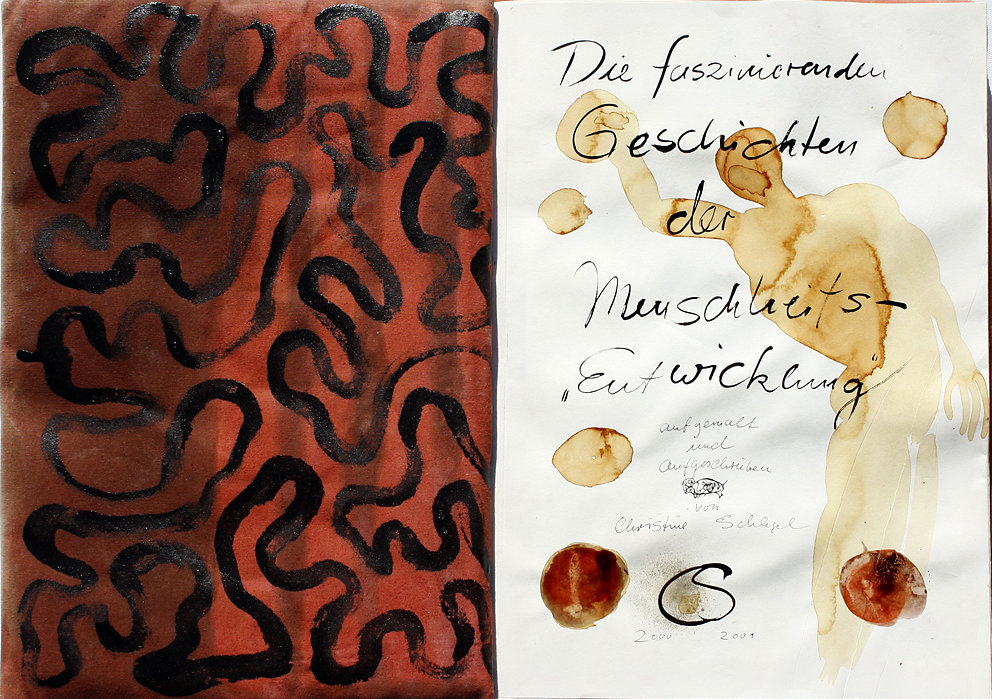 Die faszinierenden
Geschichten
der
Menschheits-
„Entwicklung"
aufgemalt
und
aufgeschrieben
von
Christine Schlegel
CS
2000 2001